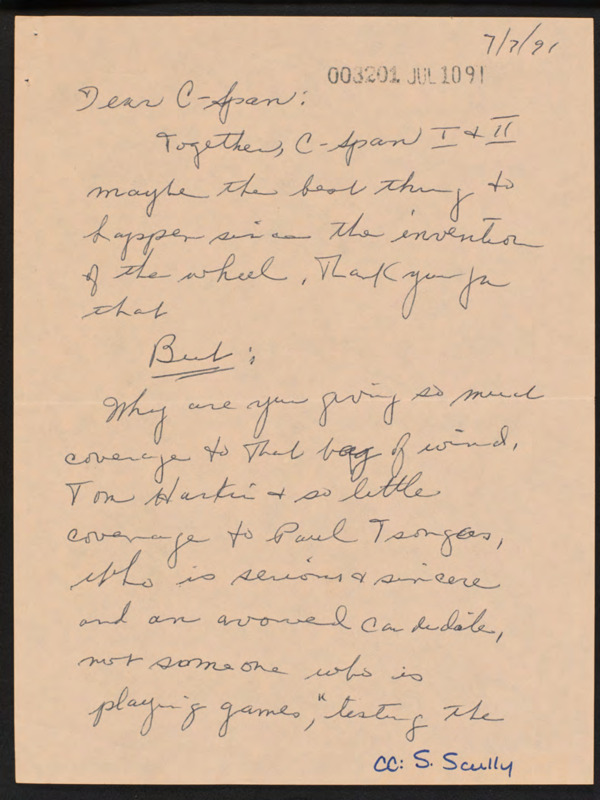 7/7/91
003201 JUL 10 91
Dear C-Span:
Together, C-Span I & II
maybe the best thing to
happen since the invention
of the wheel. Thank you for
that
But:
Why are you giving so much
coverage to that bag of wind,
Tom Harkin & so little
coverage to Paul Tsongas,
who is serious & sincere
and an avowed candidate,
not someone who is
playing games, "testing the
cc: S. Scully